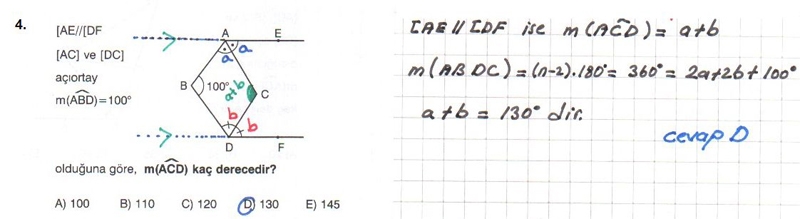 4.
[AE//[DF
[AC] ve [DC]
açıortay
m(ABD)=100°
A
E
a
a
B
100°
a+b
C
b
b
D
F
olduğuna göre, m(ACD) kaç derecedir?
A) 100 B) 110 C) 120 D) 130 E) 145
[AE // [DF ise m(ACD) = a+b
m(ABDC) = (n-2).180° = 360° = 2a+2b+100°
a+b = 130° dir.
cevap D